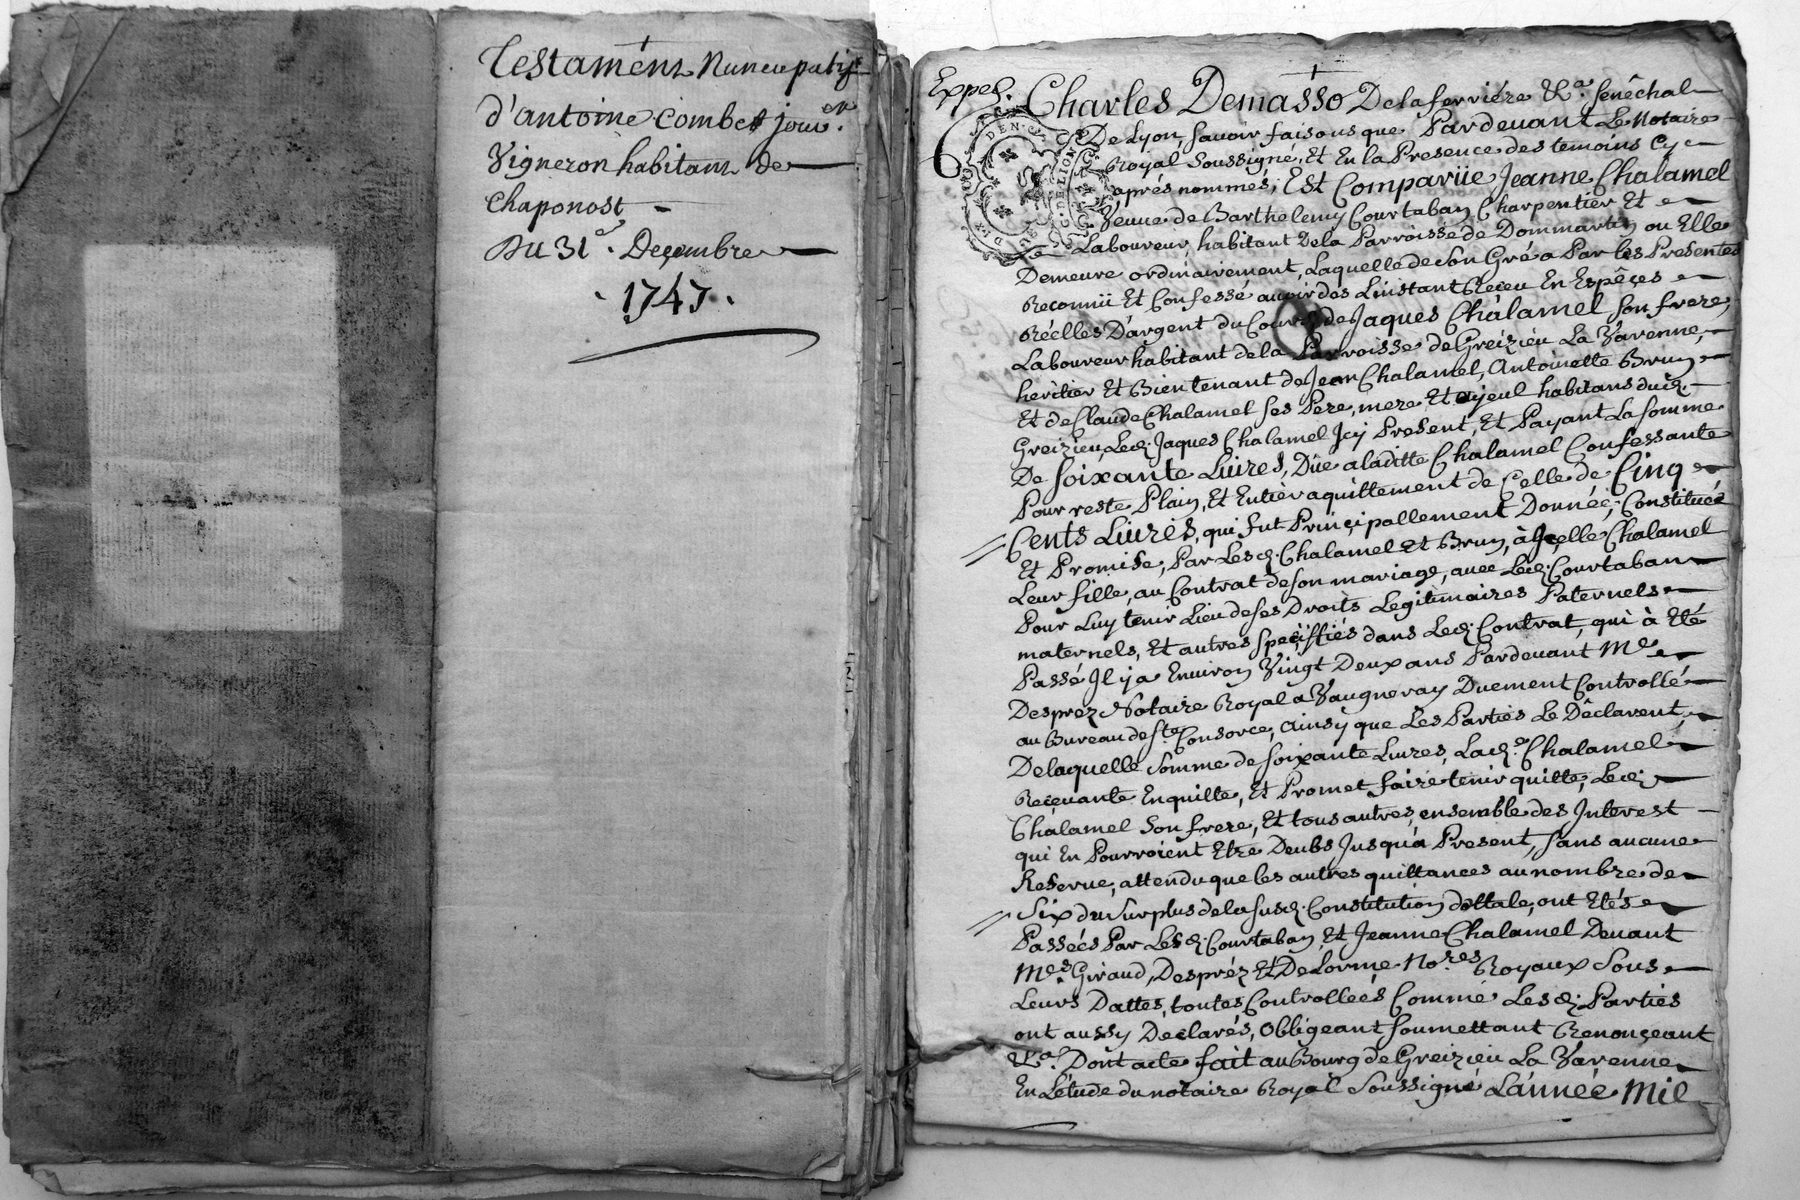 Testament Nuncupatif
d'antoine Combet jou.^en
Vigneron habitant de
Chaponost
Du 31.^e Decembre
1747.
Expe.
Charles Demasso De la ferriére &.^a Senêchal
De Lyon, Savoir faisons que Pardevant Le Notaire
Royal Soussigné, Et En la Presence des temoins Cy
aprés nommés; Est Comparüe Jeanne Chalamel
Veuve de Barthelemy Courtaban Charpentier Et
Laboureur, habitant De la Parroisse de Dommartin ou Elle
Demeure ordinairement, Laquelle de Son Gré a Par les Presentes
Reconnü Et Confessé avoir dés L'instant Reçeu En Espêçes
Réelles D'argent du Cours de Jaques Chalamel Son frere,
Laboureur habitant de la Parroisse de Greizieu La Varenne,
heritier Et Bientenant de Jean Chalamel, Antoinette Brun
Et de Claude Chalamel Ses Pere, mere Et ayeul habitans dud.
Greizieu, Led. Jaques Chalamel Icy Present, Et Payant La Somme
De Soixante Livres, Düe a laditte Chalamel Confessante
Pour reste Plain, Et Entier aquittement de Celle de Cinq
Cents Livres, qui fut Prinçipallement Donnée, Constituée
Et Promise, Par Lesd. Chalamel Et Brun, à Jcelle Chalamel
Leur fille, au Contrat de Son mariage, avec Led. Courtaban
Pour Luy tenir Lieu de Ses Droits Legitimaires Paternels
maternels, Et autres Speçiffiés dans Led. Contrat, qui à Eté
Passé Il y a Environ Vingt Deux ans Pardevant M.^e
Desprez Notaire Royal a Vaugneray Duement Controllé
au Bureau de S.^te Consorce, Ainsy que Les Parties Le Dêclarent,
De laquelle Somme de Soixante Livres, Lad.^e Chalamel
Reçevante Enquitte, Et Promet faire tenir quitte, Led.
Chalamel Son frere, Et tous autres, ensemble des Interest
qui En Pourroient Etre Deubs Jusqu'à Present, Sans aucune
Reserve, attendu que les autres quittances au nombre de
Six du Surplus de la Susd. Constitution dottale, ont Etés
Passées Par Lesd. Courtaban Et Jeanne Chalamel Devant
M.^es Giraud, Despréz Et De Lorme No.^res Royaux Sous
Leurs Dattes, toutes Controllées Comme Lesd. Parties
ont aussy Declarés, Obligeant Soumettant Renonçeant
&.^a Dont acte fait au Bourg de Greizieu La Varenne
En L'étude du notaire Royal Soussigné L'année Mil